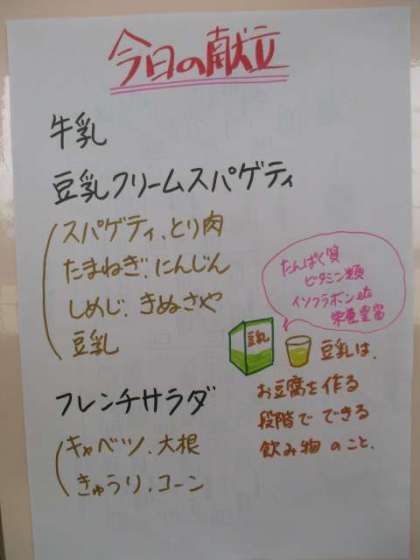 今日の献立
牛乳
豆乳クリームスパゲティ
スパゲティ、とり肉
たまねぎ、にんじん
しめじ、きぬさや
豆乳
たんぱく質
ビタミン類
イソフラボンetc
栄養豊富
豆乳
豆乳は、
お豆腐を作る
段階でできる
飲み物のこと。
フレンチサラダ
キャベツ、大根
きゅうり、コーン